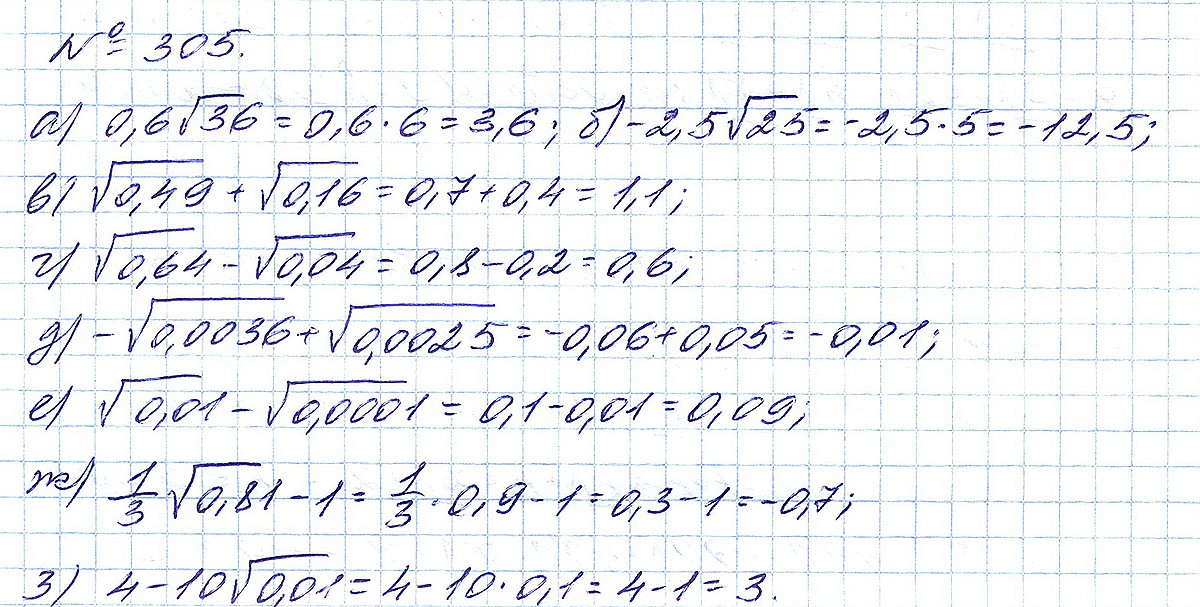 № 305.
а) 0,6√36 = 0,6·6 = 3,6; б) -2,5√25 = -2,5·5 = -12,5;
в) √0,49 + √0,16 = 0,7 + 0,4 = 1,1;
г) √0,64 - √0,04 = 0,8 - 0,2 = 0,6;
д) -√0,0036 + √0,0025 = -0,06 + 0,05 = -0,01;
е) √0,01 - √0,0001 = 0,1 - 0,01 = 0,09;
ж) 1/3 √0,81 - 1 = 1/3·0,9 - 1 = 0,3 - 1 = -0,7;
з) 4 - 10√0,01 = 4 - 10·0,1 = 4 - 1 = 3.